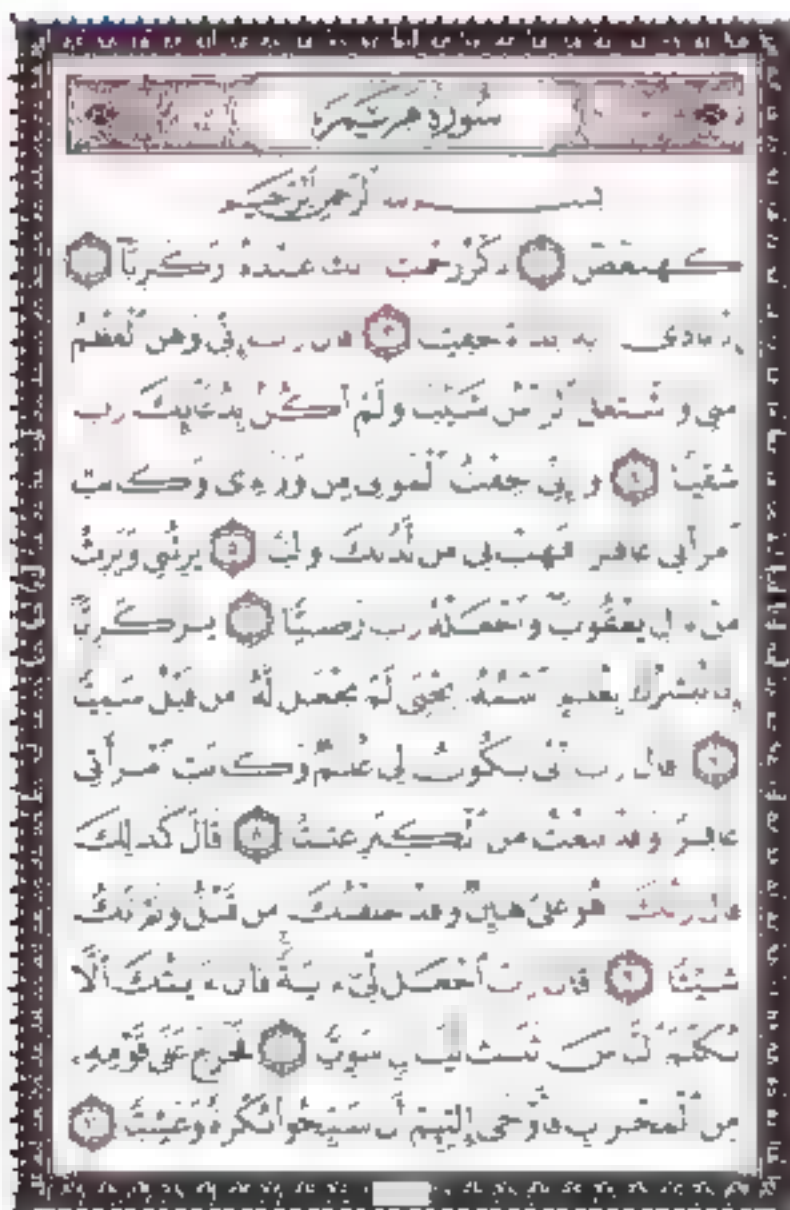 سُورَةُ مَرْيَمَ
بِسْمِ اللَّهِ الرَّحْمَٰنِ الرَّحِيمِ
كٓهيعٓصٓ ۝١ ذِكْرُ رَحْمَتِ رَبِّكَ عَبْدَهُۥ زَكَرِيَّآ ۝٢
إِذْ نَادَىٰ رَبَّهُۥ نِدَآءً خَفِيًّا ۝٣ قَالَ رَبِّ إِنِّى وَهَنَ ٱلْعَظْمُ
مِنِّى وَٱشْتَعَلَ ٱلرَّأْسُ شَيْبًا وَلَمْ أَكُنۢ بِدُعَآئِكَ رَبِّ
شَقِيًّا ۝٤ وَإِنِّى خِفْتُ ٱلْمَوَٰلِىَ مِن وَرَآءِى وَكَانَتِ
ٱمْرَأَتِى عَاقِرًا فَهَبْ لِى مِن لَّدُنكَ وَلِيًّا ۝٥ يَرِثُنِى وَيَرِثُ
مِنْ ءَالِ يَعْقُوبَ وَٱجْعَلْهُ رَبِّ رَضِيًّا ۝٦ يَٰزَكَرِيَّآ
إِنَّا نُبَشِّرُكَ بِغُلَٰمٍ ٱسْمُهُۥ يَحْيَىٰ لَمْ نَجْعَل لَّهُۥ مِن قَبْلُ سَمِيًّا
۝٧ قَالَ رَبِّ أَنَّىٰ يَكُونُ لِى غُلَٰمٌ وَكَانَتِ ٱمْرَأَتِى
عَاقِرًا وَقَدْ بَلَغْتُ مِنَ ٱلْكِبَرِ عِتِيًّا ۝٨ قَالَ كَذَٰلِكَ
قَالَ رَبُّكَ هُوَ عَلَىَّ هَيِّنٌ وَقَدْ خَلَقْتُكَ مِن قَبْلُ وَلَمْ تَكُ
شَيْـًٔا ۝٩ قَالَ رَبِّ ٱجْعَل لِّىٓ ءَايَةً قَالَ ءَايَتُكَ أَلَّا
تُكَلِّمَ ٱلنَّاسَ ثَلَٰثَ لَيَالٍ سَوِيًّا ۝١٠ فَخَرَجَ عَلَىٰ قَوْمِهِۦ
مِنَ ٱلْمِحْرَابِ فَأَوْحَىٰٓ إِلَيْهِمْ أَن سَبِّحُوا۟ بُكْرَةً وَعَشِيًّا ۝١١